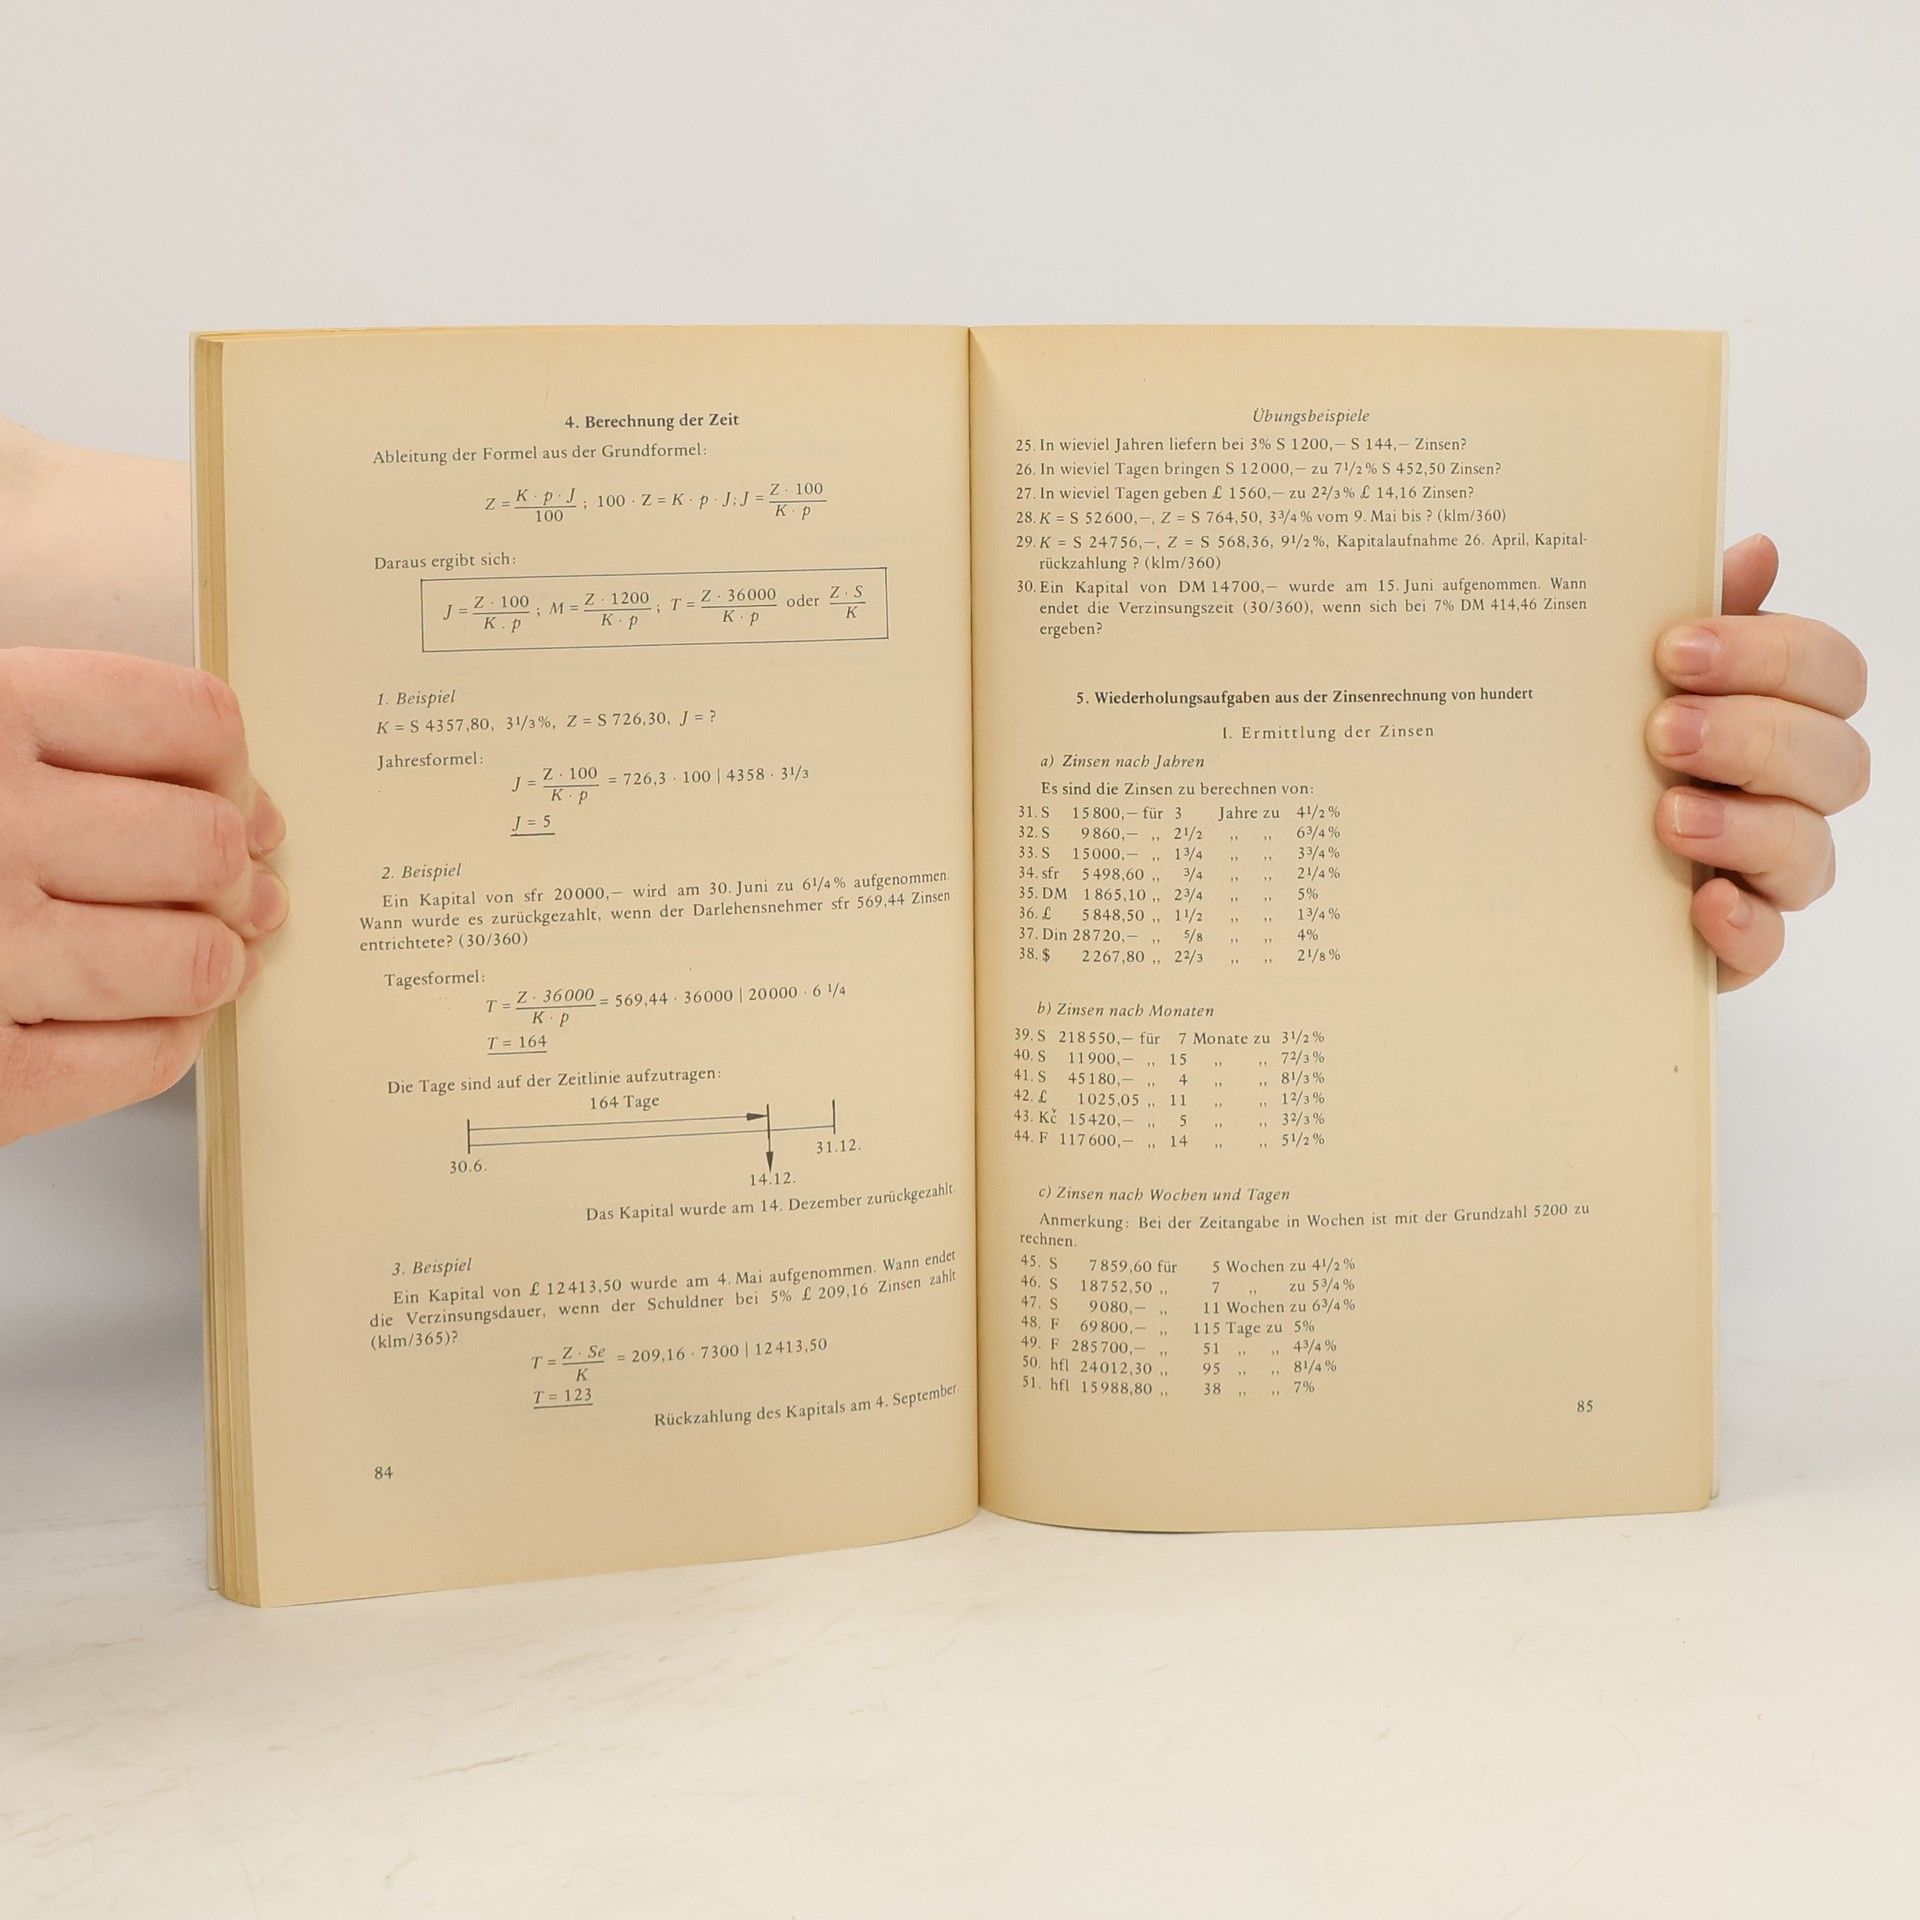 4. Berechnung der Zeit
Ableitung der Formel aus der Grundformel:
Z = K · p · J / 100 ; 100 · Z = K · p · J; J = Z · 100 / K · p
Daraus ergibt sich:
J = Z · 100 / K . p ; M = Z · 1200 / K · p ; T = Z · 36000 / K · p oder Z · S / K
1. Beispiel
K = S 4357,80, 3 1/3%, Z = S 726,30, J = ?
Jahresformel:
J = Z · 100 / K · p = 726,3 · 100 | 4358 · 3 1/3
J = 5
2. Beispiel
Ein Kapital von sfr 20000,— wird am 30. Juni zu 6 1/4% aufgenommen.
Wann wurde es zurückgezahlt, wenn der Darlehensnehmer sfr 569,44 Zinsen
entrichtete? (30/360)
Tagesformel:
T = Z · 36000 / K · p = 569,44 · 36000 | 20000 · 6 1/4
T = 164
Die Tage sind auf der Zeitlinie aufzutragen:
164 Tage
30.6.
14.12.
31.12.
Das Kapital wurde am 14. Dezember zurückgezahlt.
3. Beispiel
Ein Kapital von £ 12413,50 wurde am 4. Mai aufgenommen. Wann endet
die Verzinsungsdauer, wenn der Schuldner bei 5% £ 209,16 Zinsen zahlt
(klm/365)?
T = Z · Se / K = 209,16 · 7300 | 12413,50
T = 123
Rückzahlung des Kapitals am 4. September
84
Übungsbeispiele
25. In wieviel Jahren liefern bei 3% S 1200,— S 144,— Zinsen?
26. In wieviel Tagen bringen S 12000,— zu 7 1/2% S 452,50 Zinsen?
27. In wieviel Tagen geben £ 1560,— zu 2 2/3% £ 14,16 Zinsen?
28. K = S 52600,—, Z = S 764,50, 3 3/4% vom 9. Mai bis ? (klm/360)
29. K = S 24756,—, Z = S 568,36, 9 1/2%, Kapitalaufnahme 26. April, Kapital-
rückzahlung ? (klm/360)
30. Ein Kapital von DM 14700,— wurde am 15. Juni aufgenommen. Wann
endet die Verzinsungszeit (30/360), wenn sich bei 7% DM 414,46 Zinsen
ergeben?
5. Wiederholungsaufgaben aus der Zinsenrechnung von hundert
I. Ermittlung der Zinsen
a) Zinsen nach Jahren
Es sind die Zinsen zu berechnen von:
31. S 15800,— für 3 Jahre zu 4 1/2%
32. S 9860,— ,, 2 1/2 ,, ,, 6 3/4%
33. S 15000,— ,, 1 3/4 ,, ,, 3 3/4%
34. sfr 5498,60 ,, 3/4 ,, ,, 2 1/4%
35. DM 1865,10 ,, 2 3/4 ,, ,, 5%
36. £ 5848,50 ,, 1 1/2 ,, ,, 1 3/4%
37. Din 28720,— ,, 5/8 ,, ,, 4%
38. $ 2267,80 ,, 2 2/3 ,, ,, 2 1/8%
b) Zinsen nach Monaten
39. S 218550,— für 7 Monate zu 3 1/2%
40. S 11900,— ,, 15 ,, ,, 7 2/3%
41. S 45180,— ,, 4 ,, ,, 8 1/3%
42. £ 1025,05 ,, 11 ,, ,, 1 2/3%
43. Kč 15420,— ,, 5 ,, ,, 3 2/3%
44. F 117600,— ,, 14 ,, ,, 5 1/2%
c) Zinsen nach Wochen und Tagen
Anmerkung: Bei der Zeitangabe in Wochen ist mit der Grundzahl 5200 zu
rechnen.
45. S 7859,60 für 5 Wochen zu 4 1/2%
46. S 18752,50 ,, 7 ,, zu 5 3/4%
47. S 9080,— ,, 11 Wochen zu 6 3/4%
48. F 69800,— ,, 115 Tage zu 5%
49. F 285700,— ,, 51 ,, ,, 4 3/4%
50. hfl 24012,30 ,, 95 ,, ,, 8 1/4%
51. hfl 15988,80 ,, 38 ,, ,, 7%
85